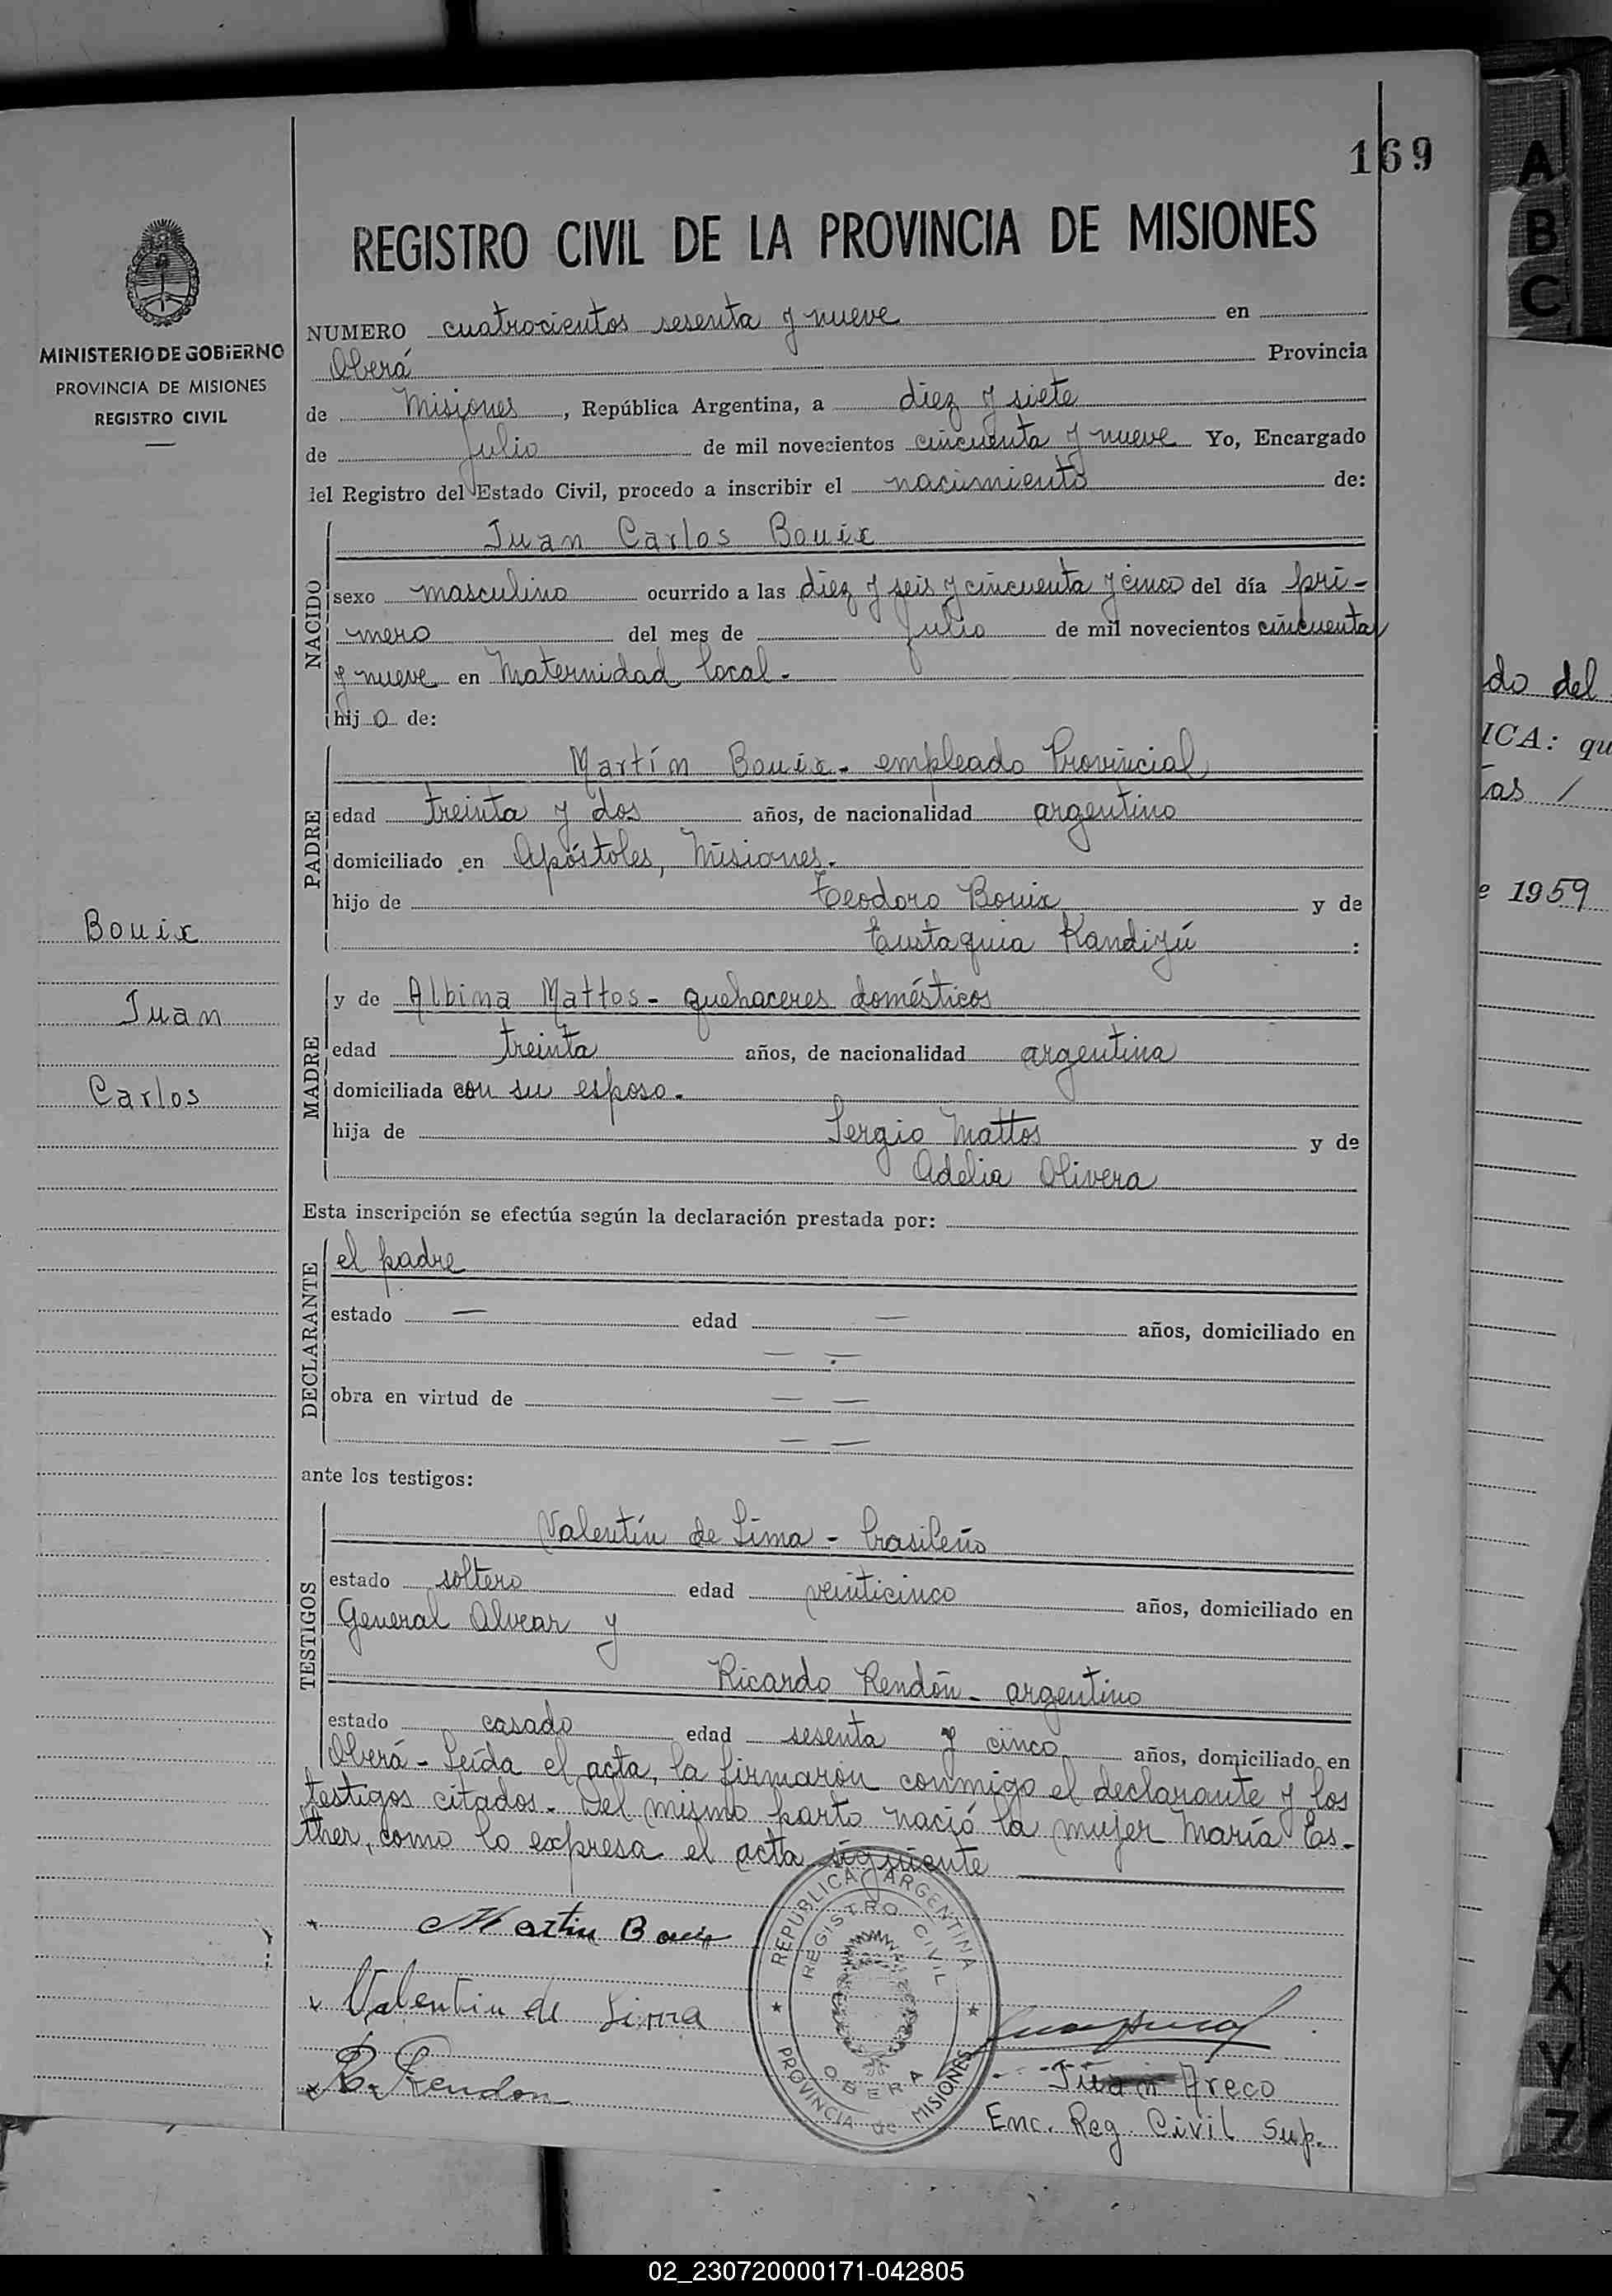 169
REGISTRO CIVIL DE LA PROVINCIA DE MISIONES
MINISTERIO DE GOBIERNO
PROVINCIA DE MISIONES
REGISTRO CIVIL
NUMERO cuatrocientos sesenta y nueve en
Oberá Provincia
de Misiones, República Argentina, a diez y siete
de Julio de mil novecientos cincuenta y nueve Yo, Encargado
del Registro del Estado Civil, procedo a inscribir el nacimiento de:
NACIDO
Juan Carlos Bouix
sexo masculino ocurrido a las diez y seis y cincuenta y cinco del día pri-
mero del mes de Julio de mil novecientos cincuenta
y nueve en Maternidad local.
hijo de:
PADRE
Martín Bouix - empleado Provincial
edad treinta y dos años, de nacionalidad argentino
domiciliado en Apóstoles, Misiones.
hijo de Teodoro Bouix y de
Eustaquia Kandiyú :
Bouix
Juan
Carlos
MADRE
y de Albina Mattos - quehaceres domésticos
edad treinta años, de nacionalidad argentina
domiciliada con su esposo.
hija de Sergio Mattos y de
Adelia Olivera
Esta inscripción se efectúa según la declaración prestada por:
DECLARANTE
el padre
estado — edad — años, domiciliado en
— —
obra en virtud de — —
— —
ante los testigos:
TESTIGOS
Valentín de Lima - brasileño
estado soltero edad veinticinco años, domiciliado en
General Alvear y
Ricardo Rendón - argentino
estado casado edad sesenta y cinco años, domiciliado en
Oberá - Leída el acta, la firmaron conmigo el declarante y los
testigos citados. Del mismo parto nació la mujer María Es-
ther, como lo expresa el acta siguiente
Martin Bouix
Valentin de Lima
R. Rendon
REPUBLICA ARGENTINA
REGISTRO CIVIL
OBERA
PROVINCIA de MISIONES
Juan Areco
Enc. Reg. Civil Sup.
do del
ICA: qu
tas /
e 1959
A
B
C
X
Y
Z
02_230720000171-042805